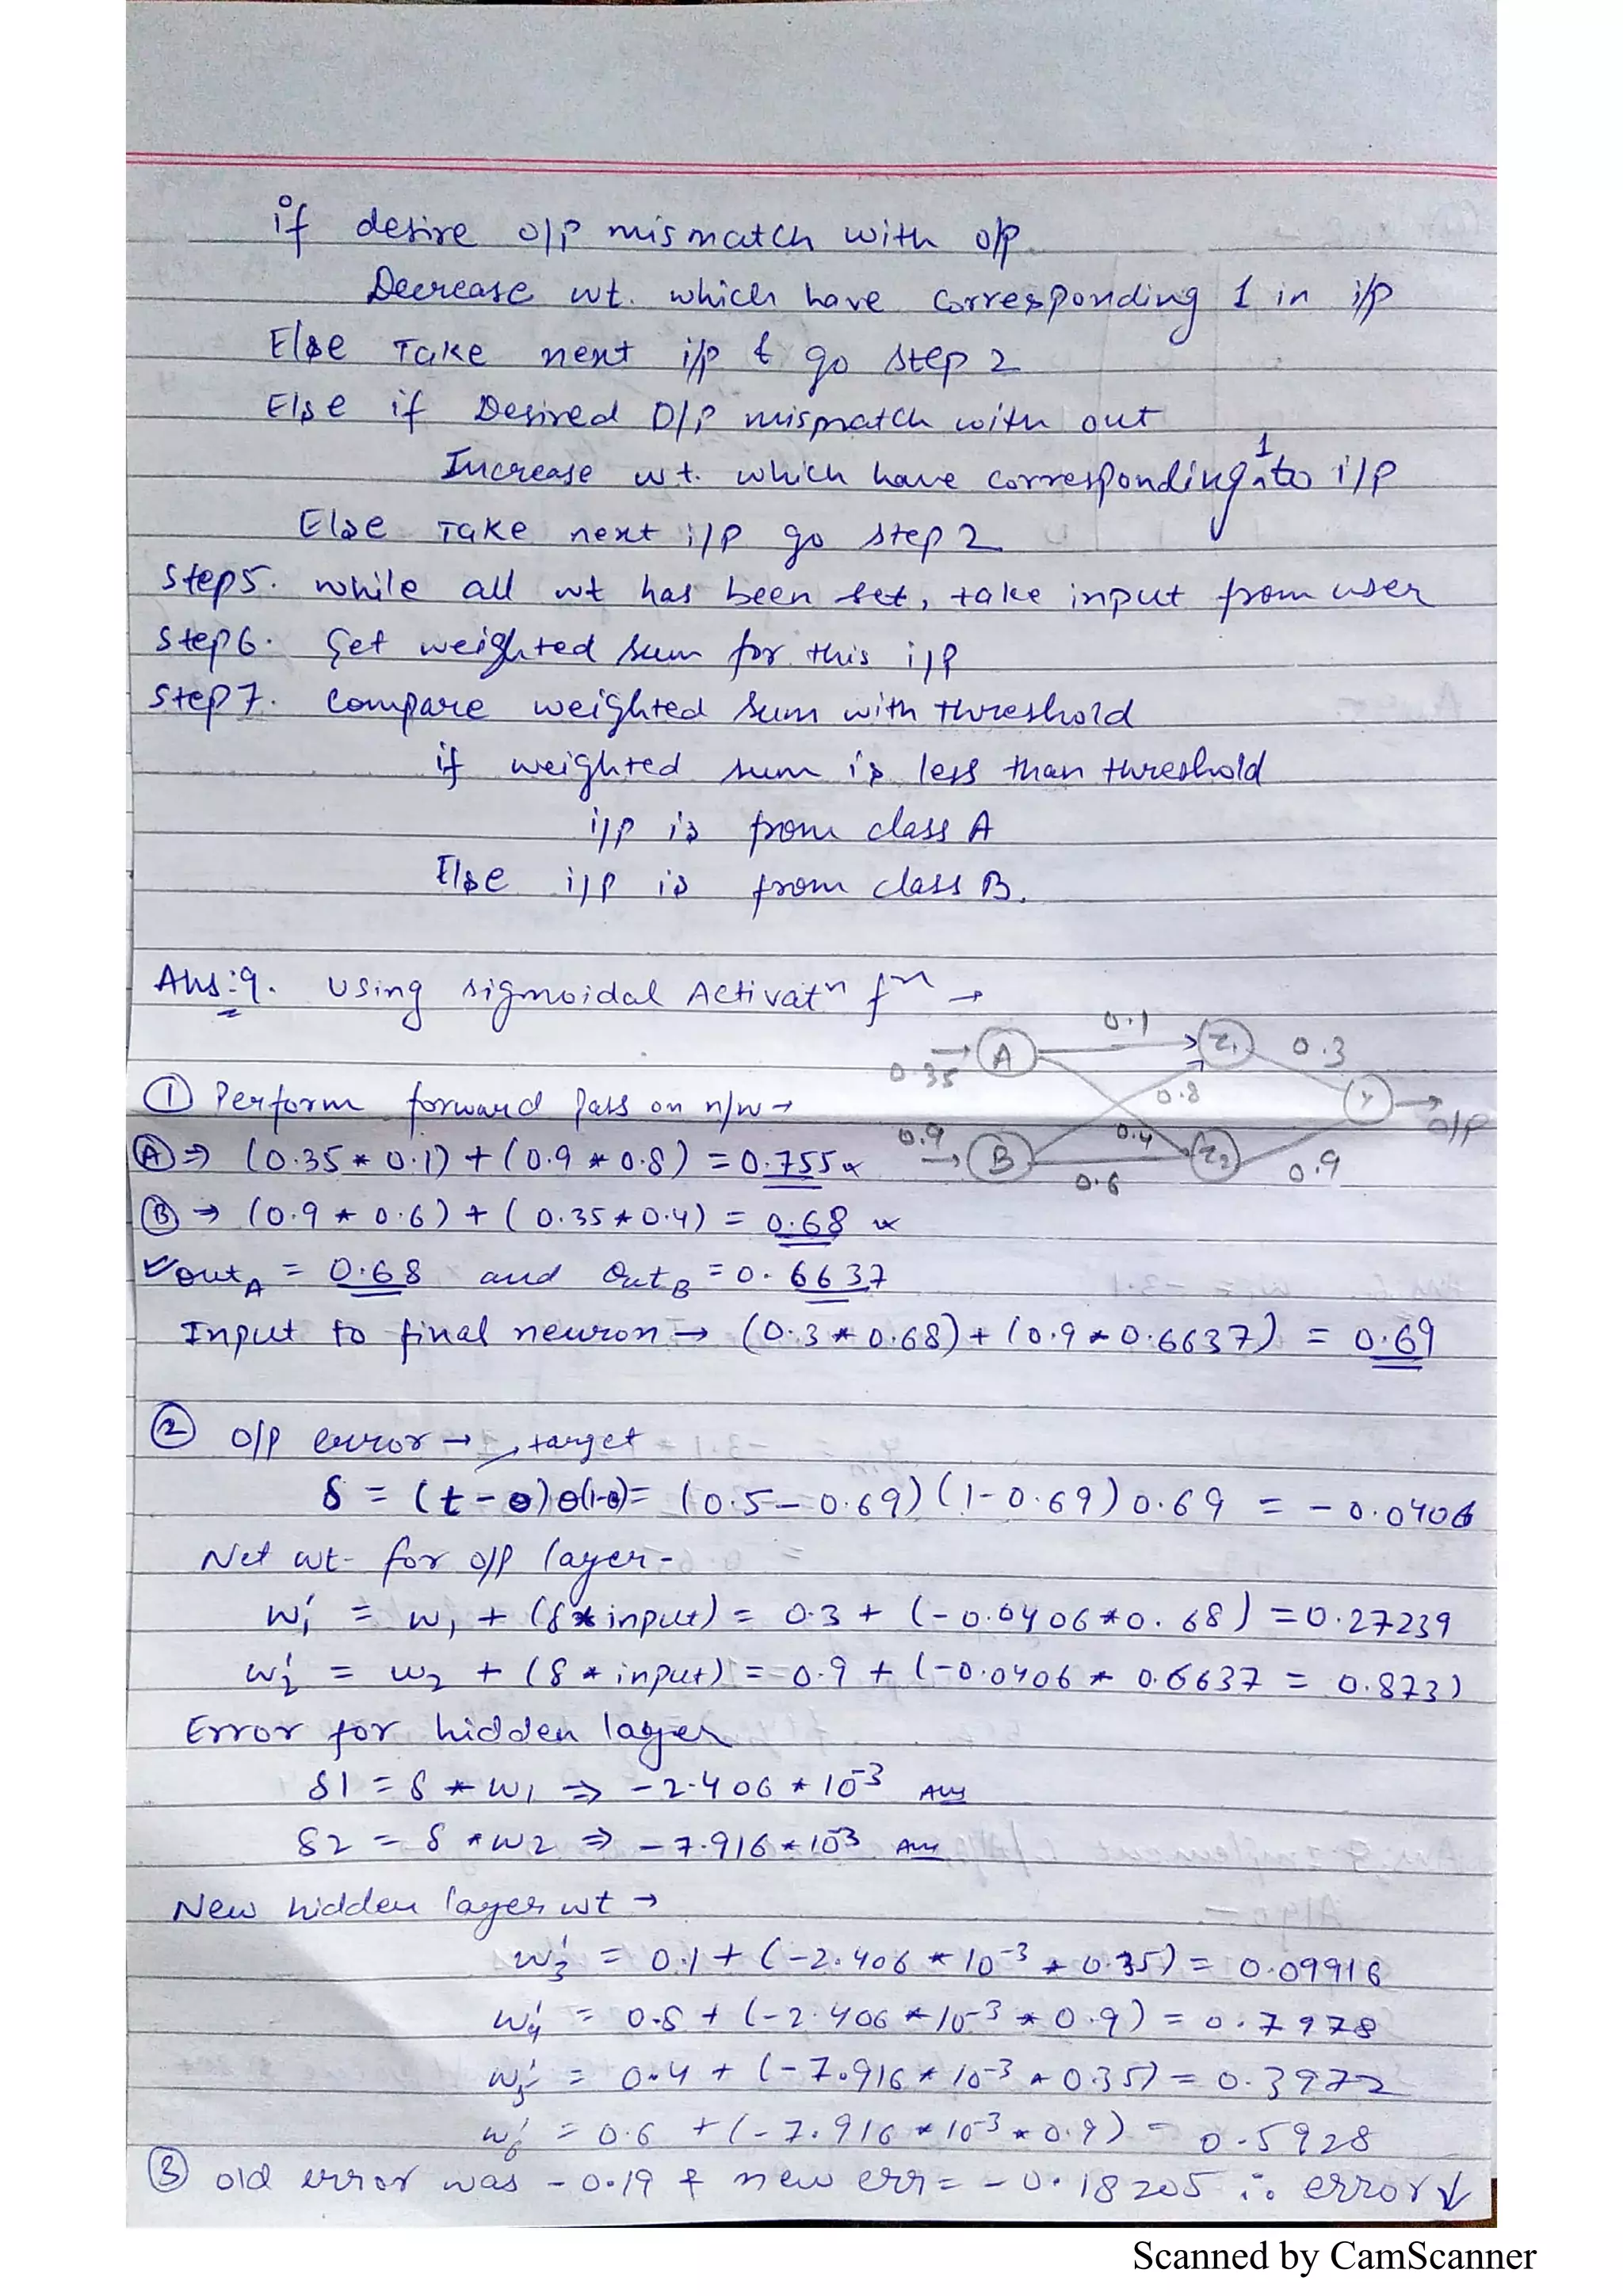 if desire o/p mismatch with o/p
Decrease wt. which have corresponding 1 in i/p
Else Take next i/p & go step 2
Else if Desired O/P mismatch with out
Increase wt. which have corresponding 1 to i/p
Else Take next i/p go step 2
Step5. while all wt has been set, take input from user
Step6. Get weighted sum for this i/p
Step7. Compare weighted sum with threshold
if weighted sum is less than threshold
i/p is from class A
Else i/p is from class B.
Ans:9. Using sigmoidal Activatn fn →
0.35 → A 0.1 z1 0.3
0.8 Y → o/p
0.9 → B 0.4 z2 0.9
0.6
① Perform forward Pass on n/w →
Ⓐ ⇒ (0.35 * 0.1) + (0.9 * 0.8) = 0.755
Ⓑ → (0.9 * 0.6) + (0.35 * 0.4) = 0.68
✓ outA = 0.68 and OutB = 0.6637
Input to final neuron → (0.3 * 0.68) + (0.9 * 0.6637) = 0.69
② o/p error → target
δ = (t - o) o(1-o) = (0.5 - 0.69) (1 - 0.69) 0.69 = - 0.0406
Net wt- for o/p layer -
w1' = w1 + (δ * input) = 0.3 + (-0.0406 * 0.68) = 0.27239
w2' = w2 + (δ * input) = 0.9 + (-0.0406 * 0.6637 = 0.873)
Error for hidden layer
δ1 = δ * w1 ⇒ -2.406 * 10-3 Ans
δ2 = δ * w2 ⇒ -7.916 * 10-3 Ans
New hidden layer wt →
w3' = 0.1 + (-2.406 * 10-3 * 0.35) = 0.09916
w4' = 0.8 + (-2.406 * 10-3 * 0.9) = 0.7978
w5' = 0.4 + (-7.916 * 10-3 * 0.35) = 0.3972
w6' = 0.6 + (-7.916 * 10-3 * 0.9) = 0.5928
③ old error was -0.19 & new err = -0.18205 ∴ error ↓
Scanned by CamScanner